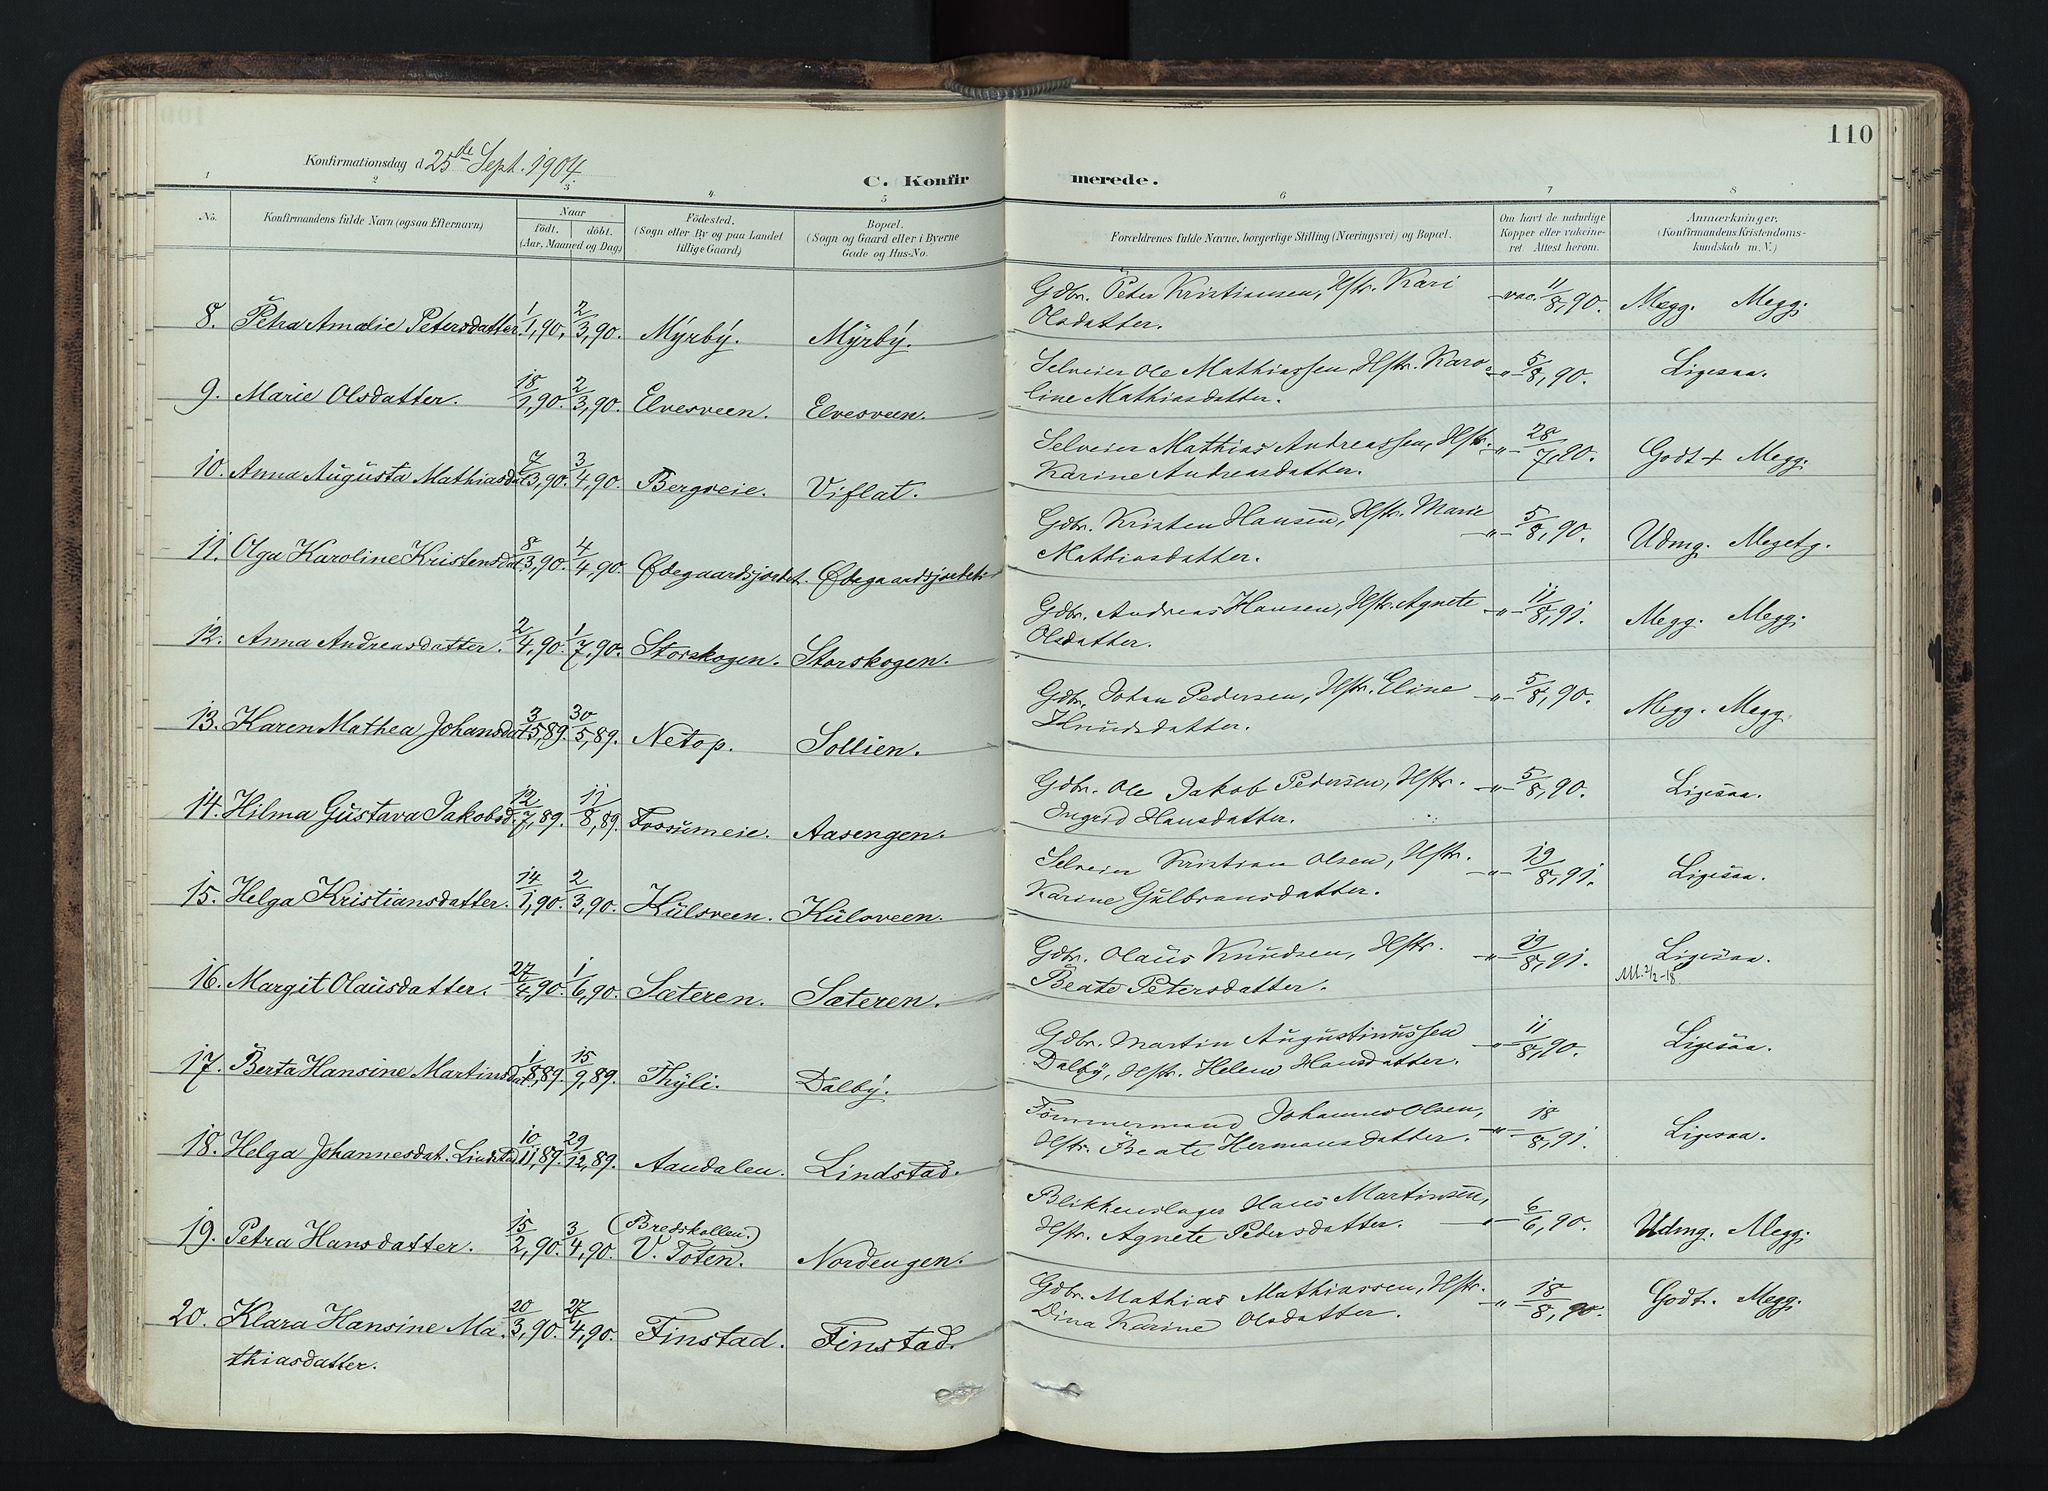 110
Konfirmationsdag d. 25de Sept. 1904.
C. Konfirmerede.
1 2 3 4 5 6 7 8
No. Konfirmandens fulde Navn (ogsaa Efternavn) Naar født. døbt. (Aar, Maaned og Dag) Fødested. (Sogn eller By og paa Landet tillige Gaard) Bopæl. (Sogn og Gaard eller i Byerne Gade og Hus-No. Forældrenes fulde Navne, borgerlige Stilling (Næringsvei) og Bopæl. Om havt de naturlige Kopper eller vakcineret. Attest herom. Anmærkninger. (Konfirmandens Kristendomskundskab m. V.)
8. Petra Amalie Petersdatter. 1/1,90. 2/3,90. Myrby. Myrby. Gdbr. Peter Kristiansen, Hstr. Kari Olsdatter. vac. 11/8,90. Megg. Megg.
9. Marie Olsdatter. 18/1,90. 2/3,90. Elvesveen. Elvesveen. Selveier Ole Mathiassen, Hstr. Karoline Mathiasdatter. -"- 5/8,90. Ligesaa.
10. Anna Augusta Mathiasdat. 7/3,90. 3/4,90. Bergseie. Viflat. Selveier Mathias Andreassen, Hstr. Karine Andreasdatter. -"- 28/7,90. Godt + Megg.
11. Olga Karoline Kristensdat. 8/3,90. 4/4,90. Ødegaardsjordet. Ødegaardsjordet. Gdbr. Kristen Hansen, Hstr. Marie Mathiasdatter. -"- 5/8,90. Udmg. Megetg.
12. Anna Andreasdatter. 2/4,90. 1/7,90. Storskogen. Storskogen. Gdbr. Andreas Hansen, Hstr. Agnete Olsdatter. -"- 11/8,91. Megg. Megg.
13. Karen Mathea Johansdat. 3/5,89. 30/5,89. Netop. Sollien. Gdbr. Johan Pedersen, Hstr. Eline Knudsdatter. -"- 5/8,90. Megg. Megg.
14. Hilma Gustava Jakobsd. 12/7,89. 11/8,89. Fossumeie. Aasengen. Gdbr. Ole Jakob Pedersen, Hstr. Ingrid Hansdatter. -"- 5/8,90. Ligesaa.
15. Helga Kristiansdatter. 14/1,90. 2/3,90. Kulsveen. Kulsveen. Selveier Kristian Olsen, Hstr. Karine Gulbransdatter. -"- 19/8,91. Ligesaa.
16. Margit Olausdatter. 27/4,90. 1/6,90. Sæteren. Sæteren. Gdbr. Olaus Knudsen, Hstr. Beate Petersdatter. -"- 19/8,91. Ligesaa.
17. Berta Hansine Martinsdat. 1/8,89. 15/9,89. Thyli. Dalby. Gdbr. Martin Augustinussen Dalby, Hstr. Helene Hansdatter. -"- 11/8,90. Ligesaa.
18. Helga Johannesdat. Lindstad. 10/11,89. 29/12,89. Aandalen. Lindstad. Tømmermand Johannes Olsen, Hstr. Beate Hermansdatter. -"- 18/8,91. Ligesaa.
19. Petra Hansdatter. 15/2,90. 3/4,90. (Bredskallen.) V. Toten. Nordengen. Blikkenslager Hans Martinsen, Hstr. Agnete Pedersdatter. -"- 6/6,90. Udmg. Megg.
20. Klara Hansine Ma- 20/3,90. 27/4,90. Finstad. Finstad. Gdbr. Mathias Mathiassen, Hstr. Dina Karine Olsdatter. -"- 18/8,90. Godt. Megg.
thiasdatter.